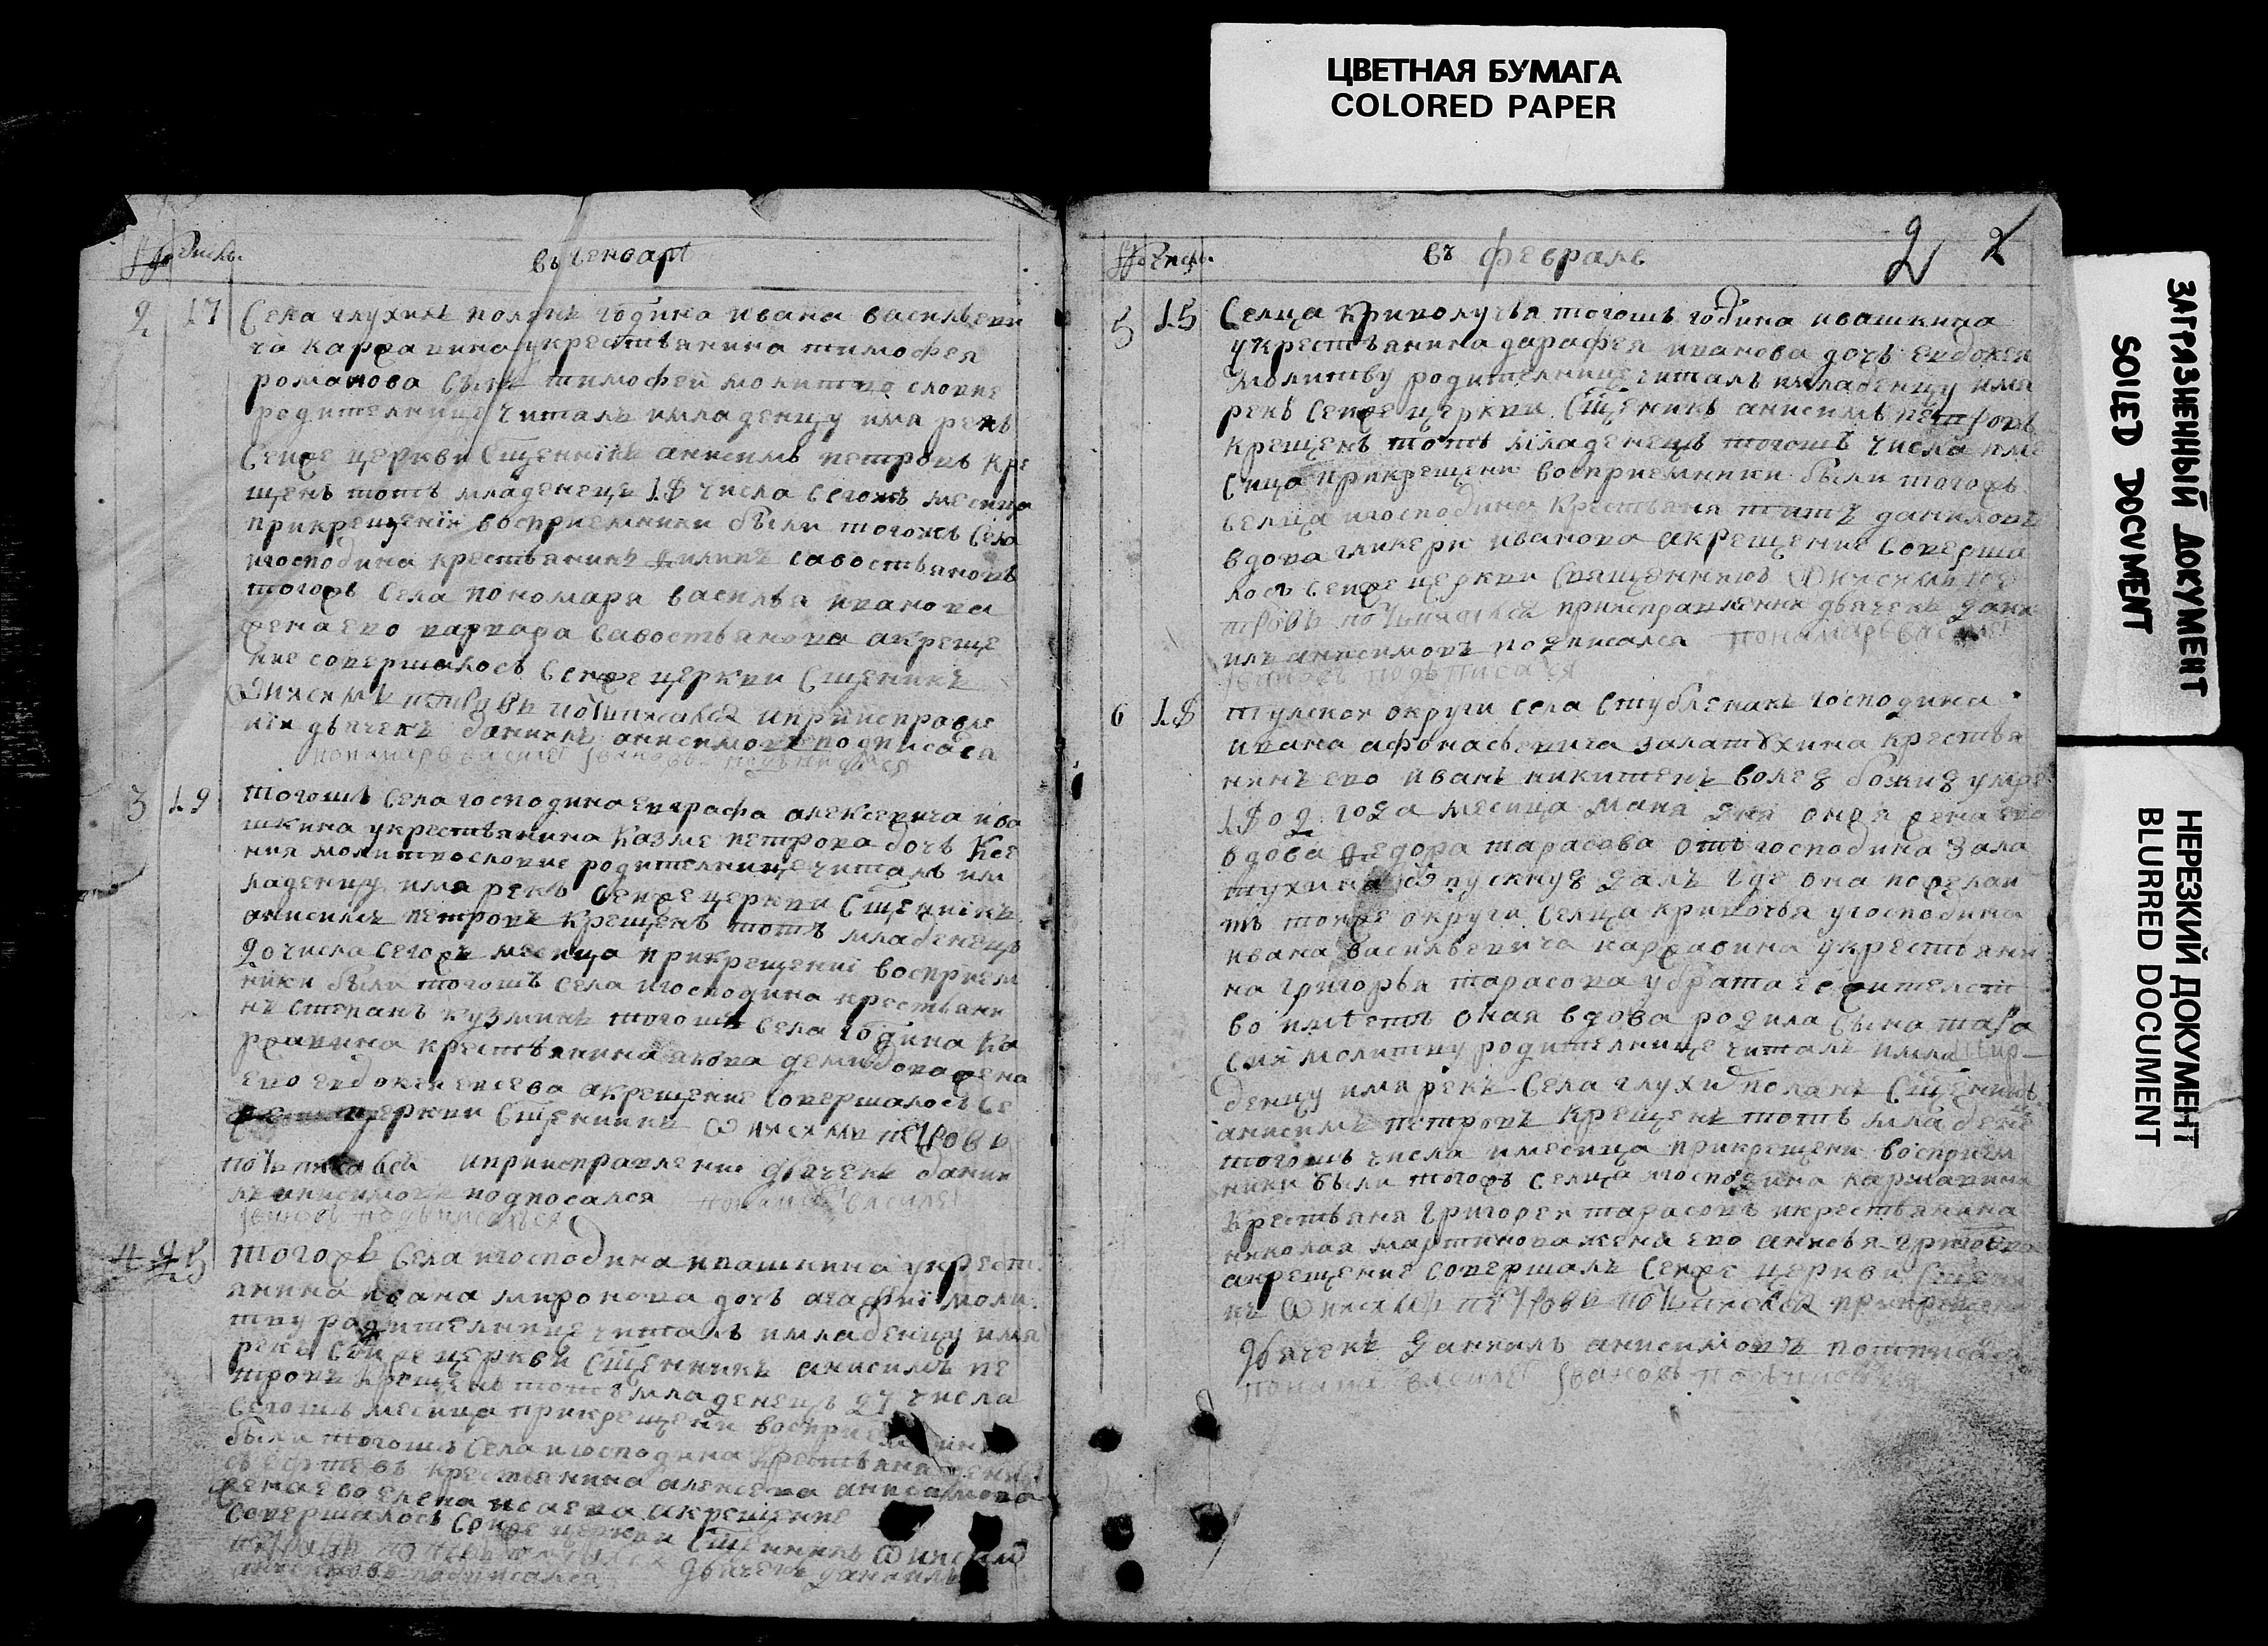 ЦВЕТНАЯ БУМАГА
COLORED PAPER
ЗАГРЯЗНЕННЫЙ ДОКУМЕНТ
SOILED DOCUMENT
НЕРЕЗКИЙ ДОКУМЕНТ
BLURRED DOCUMENT
числ.
въ генваре
2 17 Села глухихъ полянъ година ивана васильеви
ча каржавина укрестьянина тимофея
романова сынъ тимофей молитво словие
родителнице читалъ имладенцу имя рекъ
Сеиже церкви Сщенникъ анисимъ петровъ кре
щенъ тотъ младенецъ 18 числа сегожъ месица
прикрещении восприемники были тогожъ села
игосподина крестьянинъ филипъ савостьяновъ
тогожъ села пономаря василья иванова
жена ево варвара савостьянова акреще
ние совершалось Сеиже церкви Сщеникъ
Анисимъ петровъ иприисправле
нии дьячекъ данилъ анисимовъ подписался
понамарь василеи Ивановъ подписался
3 19 тогошъ села господина евграфа алексеевича ива
шкина укрестьянина казме петрова дочь ксе
ния молитвословие родителнице читалъ им
ладенцу имя рекъ Сеиже церкви Сщенникъ
анисимъ петровъ крещенъ тотъ младенецъ
20 числа сегожъ месица прикрещении восприем
ники были тогошъ села игосподина крестьяни
нъ степанъ кузминъ тогошъ села година ка
ржавина крестьянина якова демидова жена
ево евдокея евсева акрещение совершалось се
церкви Сщенникъ Анисимъ петровъ
иприисправлении дьячекъ данил
лъ анисимовъ подписался понамарь василеи
Ивановъ подписался
4 25 тогожъ села игосподина ивашкина укрест
янина ивана миронова дочь агафиі моли
тву родителнице читалъ имладенцу имя
рекъ Сеиже церкви Сщенникъ анисимъ пе
тровъ крещенъ тотъ младенецъ 27 числа
сегошъ месица прикрещени восприемники
были тогошъ села игосподина крестьяна
крестьянина алексеева анисимова
жена ево елена исаева акрещение
совершалось Сеиже церкви Сщенникъ Анисим
петровъ дьячекъ данилъ
анисимовъ подписался
числ. въ феврале 2 2
5 15 Селца криволучья тогошъ година ивашкина
укрестьянина дарафея иванова дочь евдокея
молитву родителнице читалъ имладенцу имя
рекъ Сеиже церкви Сщенникъ анисимъ петровъ
крещенъ тотъ младенецъ тогошъ числа име
сица прикрещени восприемники были тогожъ
селца игосподина крестьяня титъ даниловъ
вдова гликери иванова акрещение соверша
лось Сеиже церкви Священникъ Анисимъ пе
тровъ приисправлении дьячекъ дани
илъ анисимовъ подписался понамарь василеи
Ивановъ подписался
6 18 тулской округи села студленакъ господина
ивана афонасьевича залатухина крестья
нинъ ево иванъ никитенъ волею божию умре
1802 года месица маия дня оноя жена ево
вдова федора тарасова отъ господина зала
тухина отпускную далъ где она пожелаи
тъ тоиже округи селца кривочья угосподина
ивана васильевича каржавина укрестьяни
на григорья тарасова убрата ее жителст
во имеетъ оная вдова родила сына тара
сия молитву родителнице читалъ имла
денцу имя рекъ Села глухи полянъ Сщенникъ
анисимъ петровъ крещенъ тотъ младене
тогошъ числа имесица прикрещени восприем
ники были тогожъ селца игосподина каржавина
крестьяня григореи тарасовъ икрестьянина
николая мартинова жена ево анисья
акрещение совершалъ Сеиже церкви Сщени
къ Анисимъ петровъ прикрещени
дьячекъ даниилъ анисимовъ потписался
понама василеи Ивановъ подписался